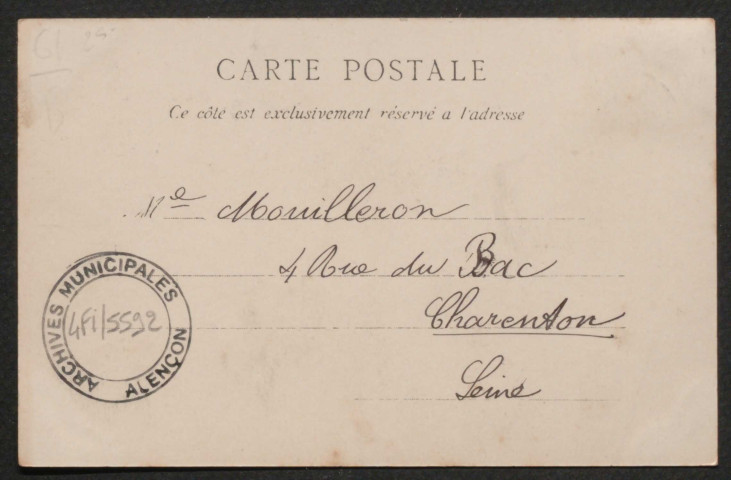 CARTE POSTALE
Ce côté est exclusivement réservé a l'adresse
Me Mouilleron
4 Rue du Bac
Charenton
Seine
ARCHIVES MUNICIPALES
4Fi/5592
ALENÇON